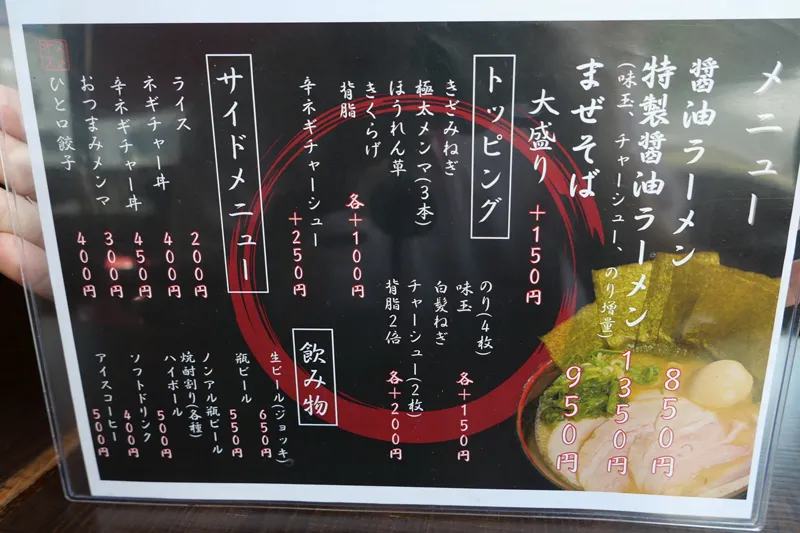 メニュー
醤油ラーメン 850円
特製醤油ラーメン 1350円
(味玉、チャーシュー、のり増量)
まぜそば 950円
大盛り +150円
トッピング
きざみねぎ
極太メンマ(3本)
ほうれん草
きくらげ
背脂
各+100円
辛ネギチャーシュー +250円
のり(4枚)
味玉
白髪ねぎ
各+150円
チャーシュー(2枚)
背脂2倍
各+200円
サイドメニュー
ライス 200円
ネギチャー丼 400円
辛ネギチャー丼 450円
おつまみメンマ 300円
ひと口餃子 400円
飲み物
生ビール(ジョッキ) 650円
瓶ビール 550円
ノンアル瓶ビール
焼酎割り(各種)
ハイボール 500円
ソフトドリンク 400円
アイスコーヒー 500円